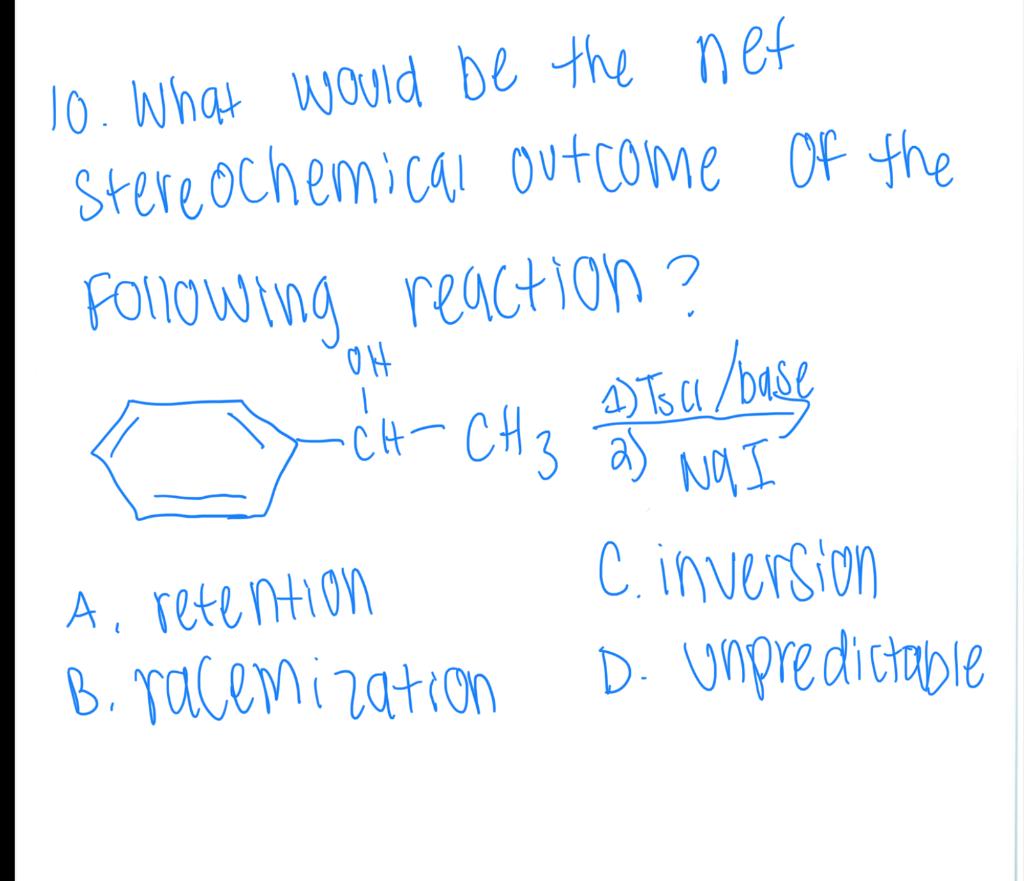 10. What would be the net
stereochemical outcome of the
following reaction?
OH
CH - CH3
1) TsCl/base
2) NaI
A. retention
C. inversion
B. racemization
D. unpredictable